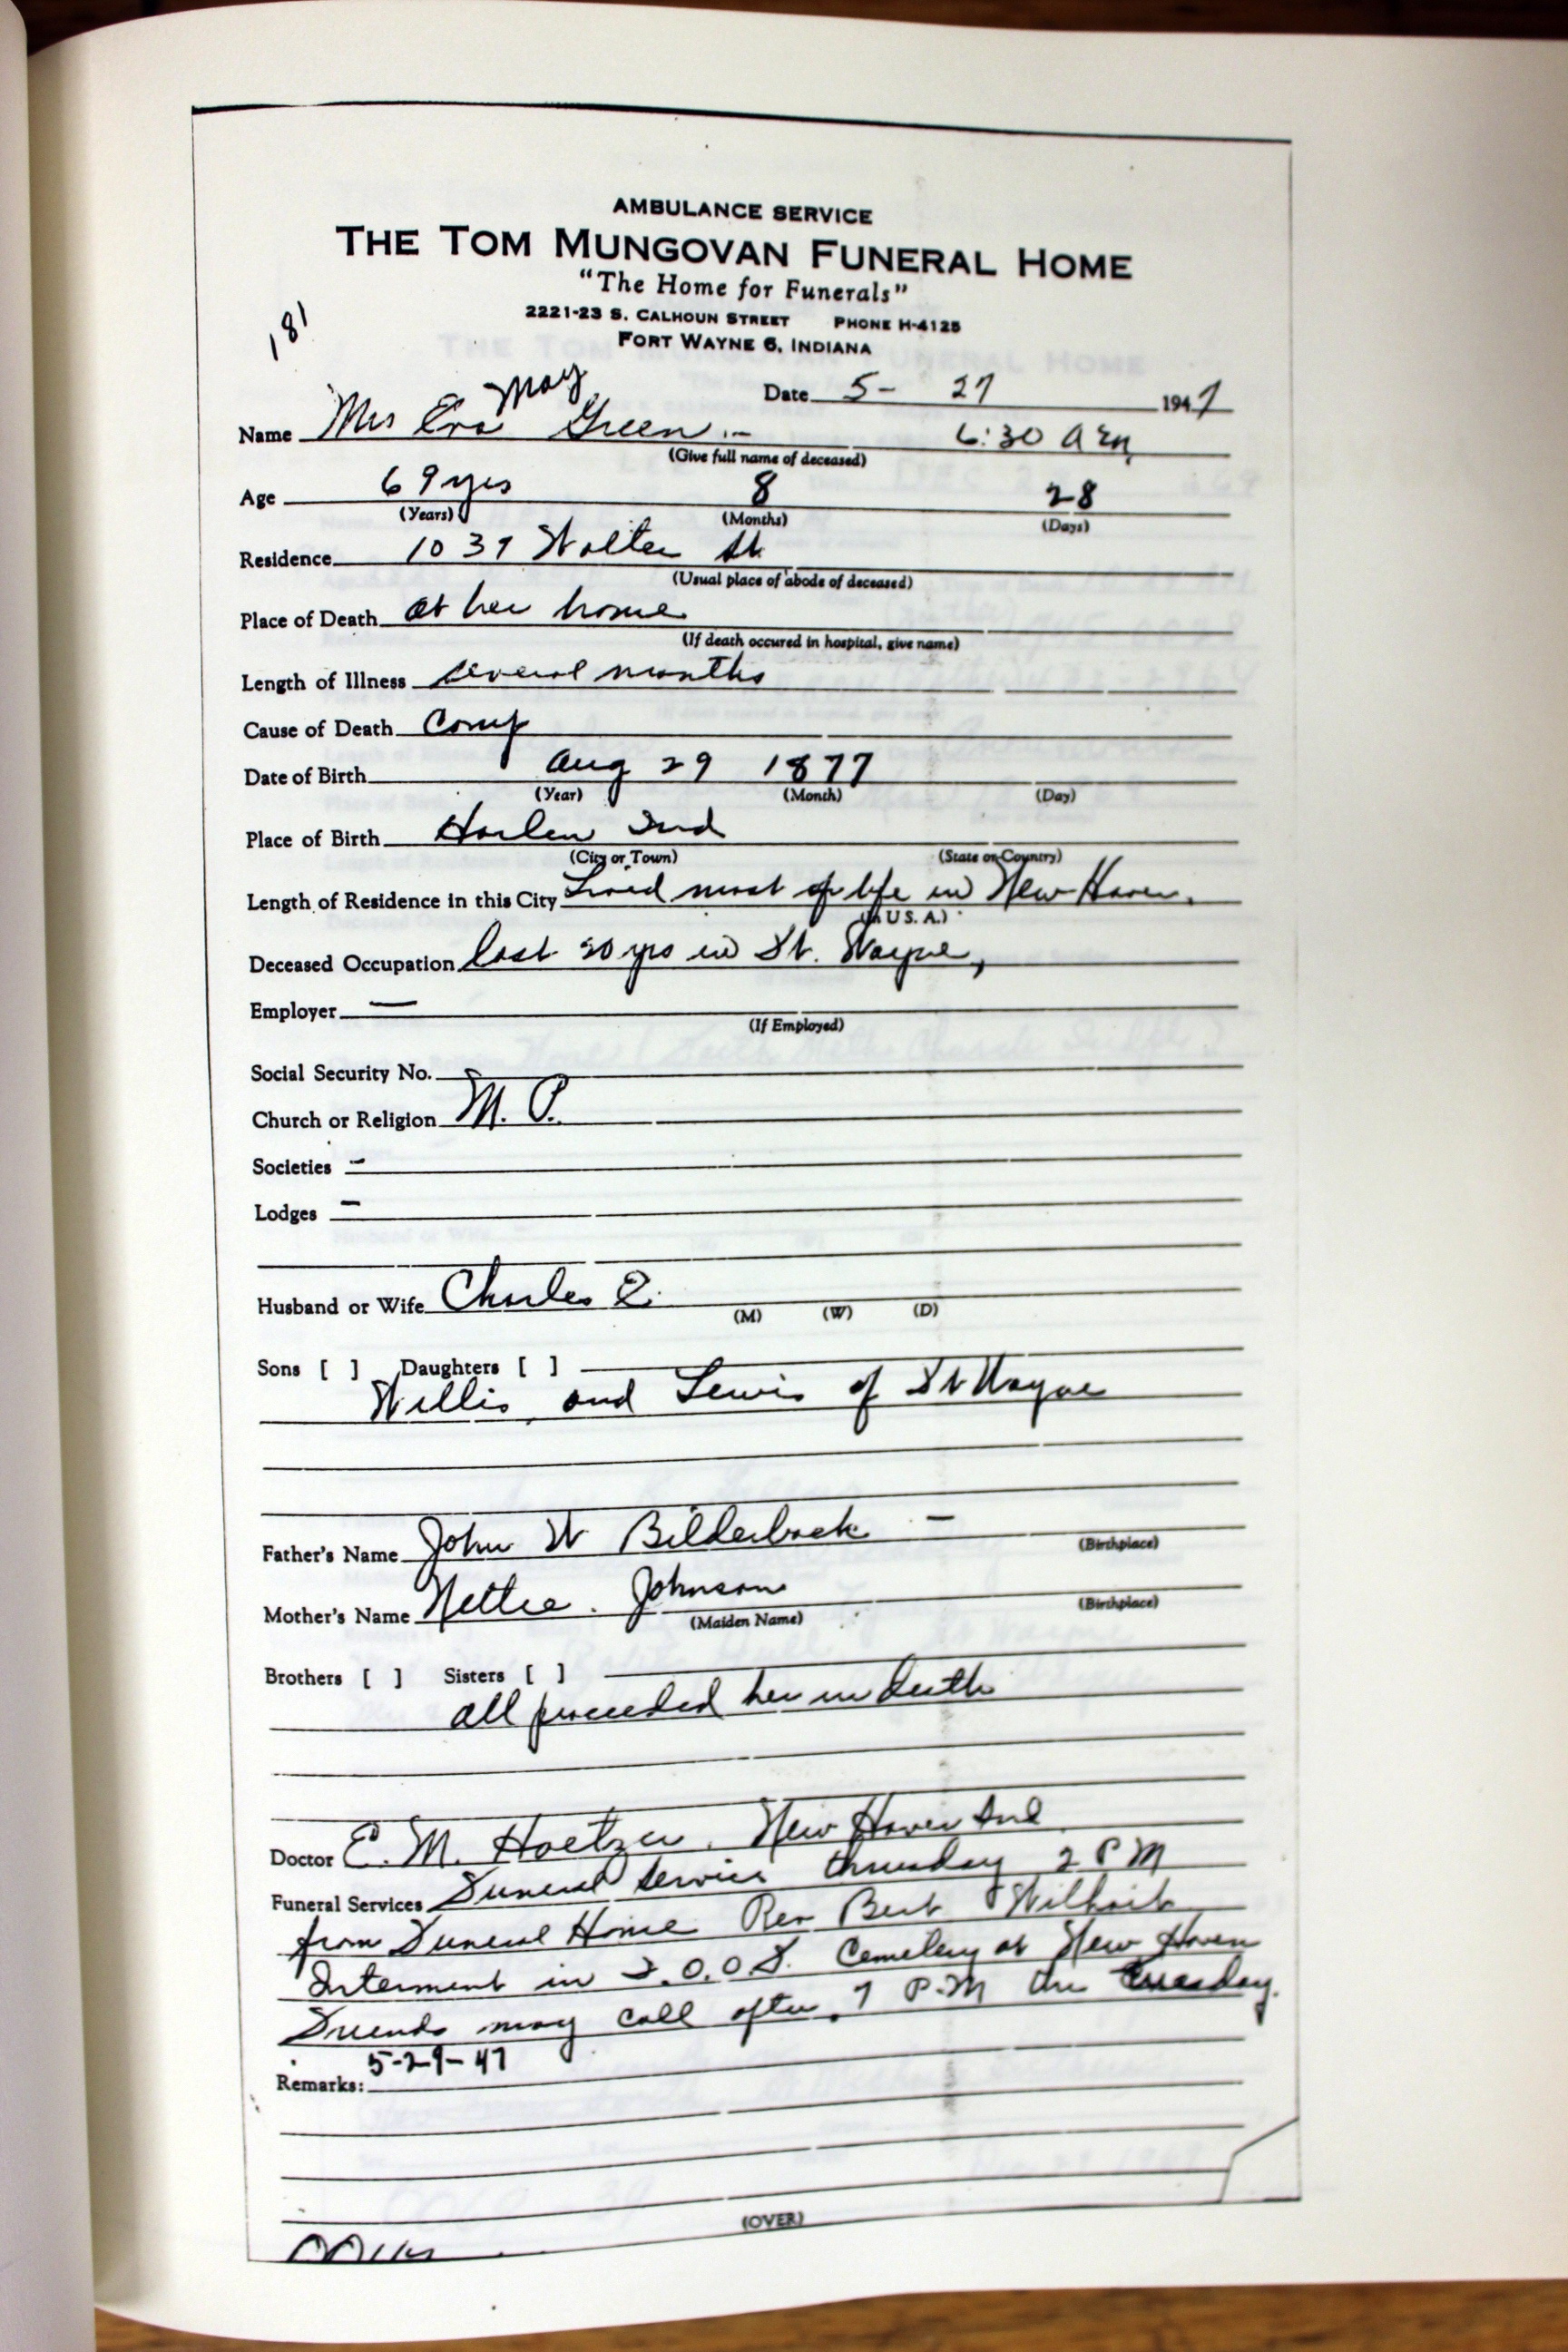 AMBULANCE SERVICE
THE TOM MUNGOVAN FUNERAL HOME
"The Home for Funerals"
2221-23 S. CALHOUN STREET PHONE H-4125
FORT WAYNE 6, INDIANA
181
Date 5- 27 1947
May
Name Mrs Eva Green .- 6:30 A M
(Give full name of deceased)
Age 69 yrs 8 28
(Years) (Months) (Days)
Residence 1037 Walter St
(Usual place of abode of deceased)
Place of Death at her home
(If death occured in hospital, give name)
Length of Illness several months
Cause of Death Comp
Date of Birth Aug 29 1877
(Year) (Month) (Day)
Place of Birth Harlan Ind
(City or Town) (State or Country)
Length of Residence in this City Lived most of life in New Haven,
(In U S. A.)
Deceased Occupation last 20 yrs in Ft. Wayne,
Employer —
(If Employed)
Social Security No.
Church or Religion M. P.
Societies -
Lodges -
Husband or Wife Charles E.
(M) (W) (D)
Sons [ ] Daughters [ ]
Willis, and Lewis of Ft Wayne
Father's Name John W Bilderback -
(Birthplace)
Mother's Name Nettie. Johnson
(Maiden Name) (Birthplace)
Brothers [ ] Sisters [ ]
all preceeded her in death
Doctor E. M. Hoetzer. New Haven Ind
Funeral Services Funeral Service thursday 2 PM
from Funeral Home Rev Bert Wilhoit
Interment in I.O.O.F. Cemetery at New Haven
Friends may call after 7 P.M on Tuesday.
5-29-47
Remarks:
(OVER)